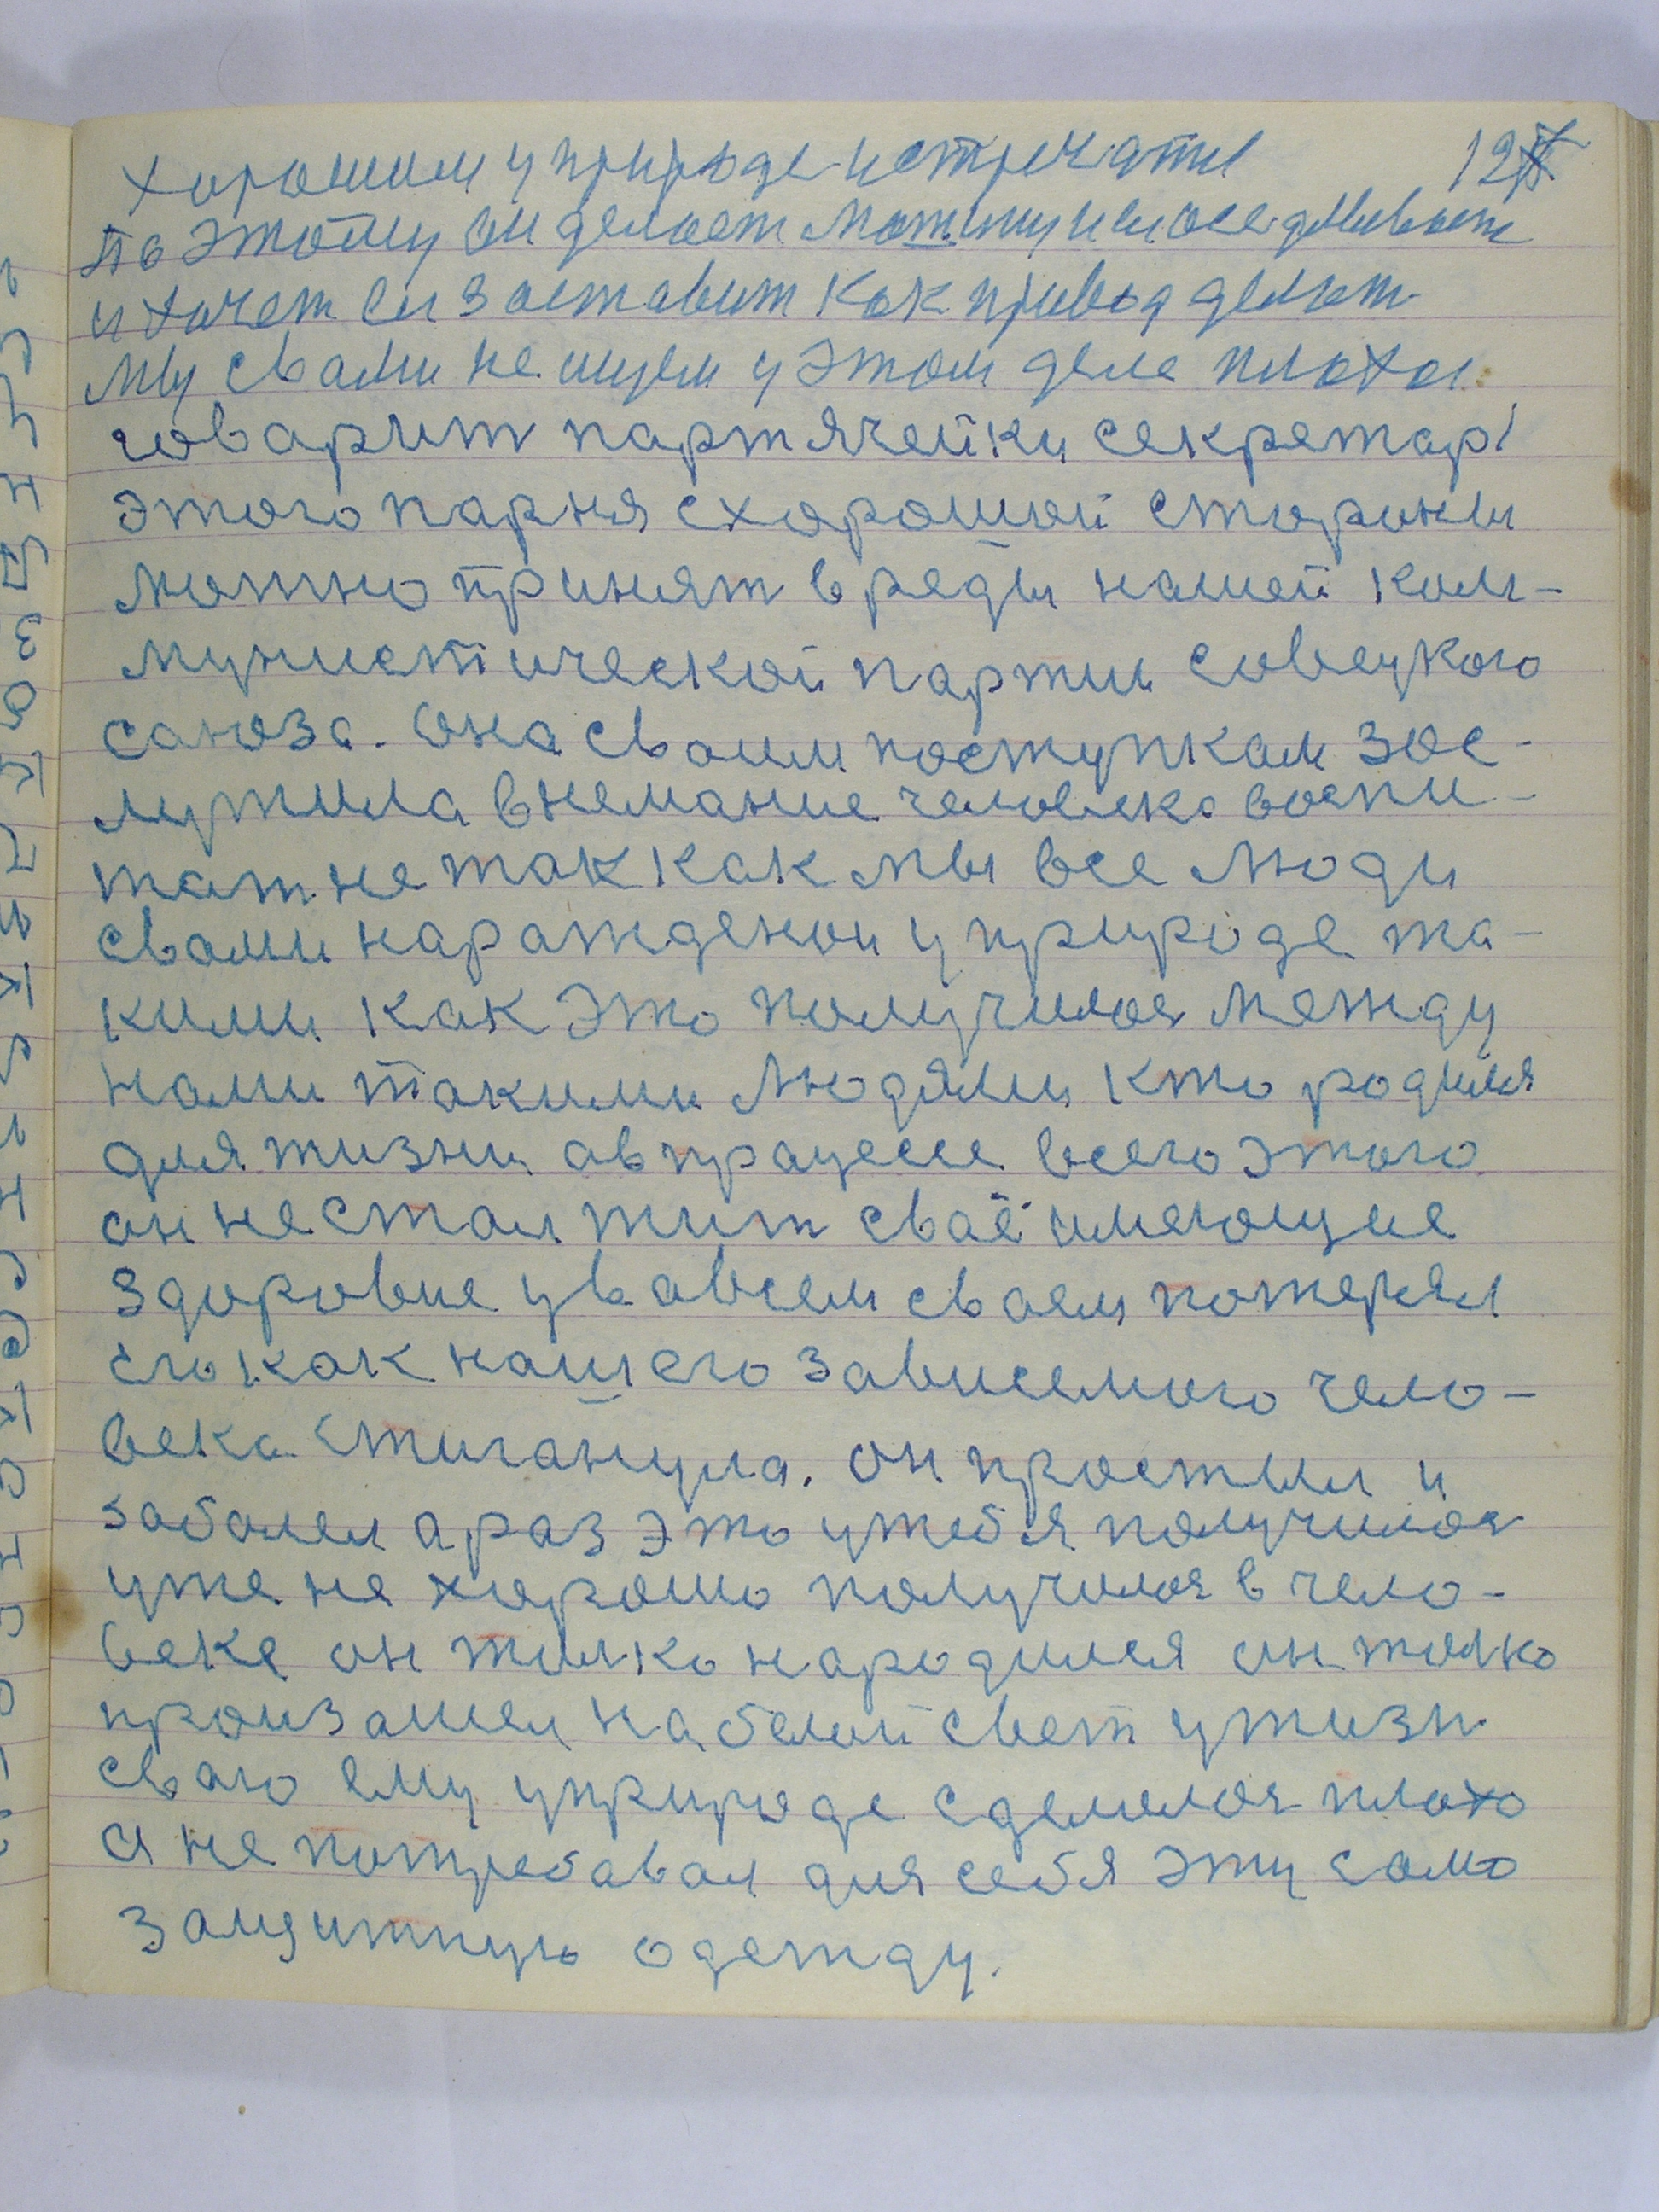 хорошим у природе и стречатые 12
По этому он делает машину и ею оседливает
и хочет ею заставит как привод делат
мы свами не ищем у этом деле плохое
говарит партячейки секретарь
этого парня схорошой стороны
можно принят в реды нашей ком-
мунистической партии совецкого
саюза. Она сваим поступкам зас-
лужила внемание человека воспи-
тат не так как мы все люди
свами нарожденои у природе та-
кими как это получилос между
нами такими людями кто родился
для жизни ав працессе всего этого
он не стал жит сваё имеющие
здоровие ув авсем сваем потерял
его как нашего зависемого чело-
века стиганула. он простыл и
заболел а раз это утебя получилос
уже не хорошо получилос в чело-
веке он толко народился он толко
произашел на белый свет ужизн
сваго ему уприроде сделалос плохо
а не потребавал для себя эту само
защитную одежду.